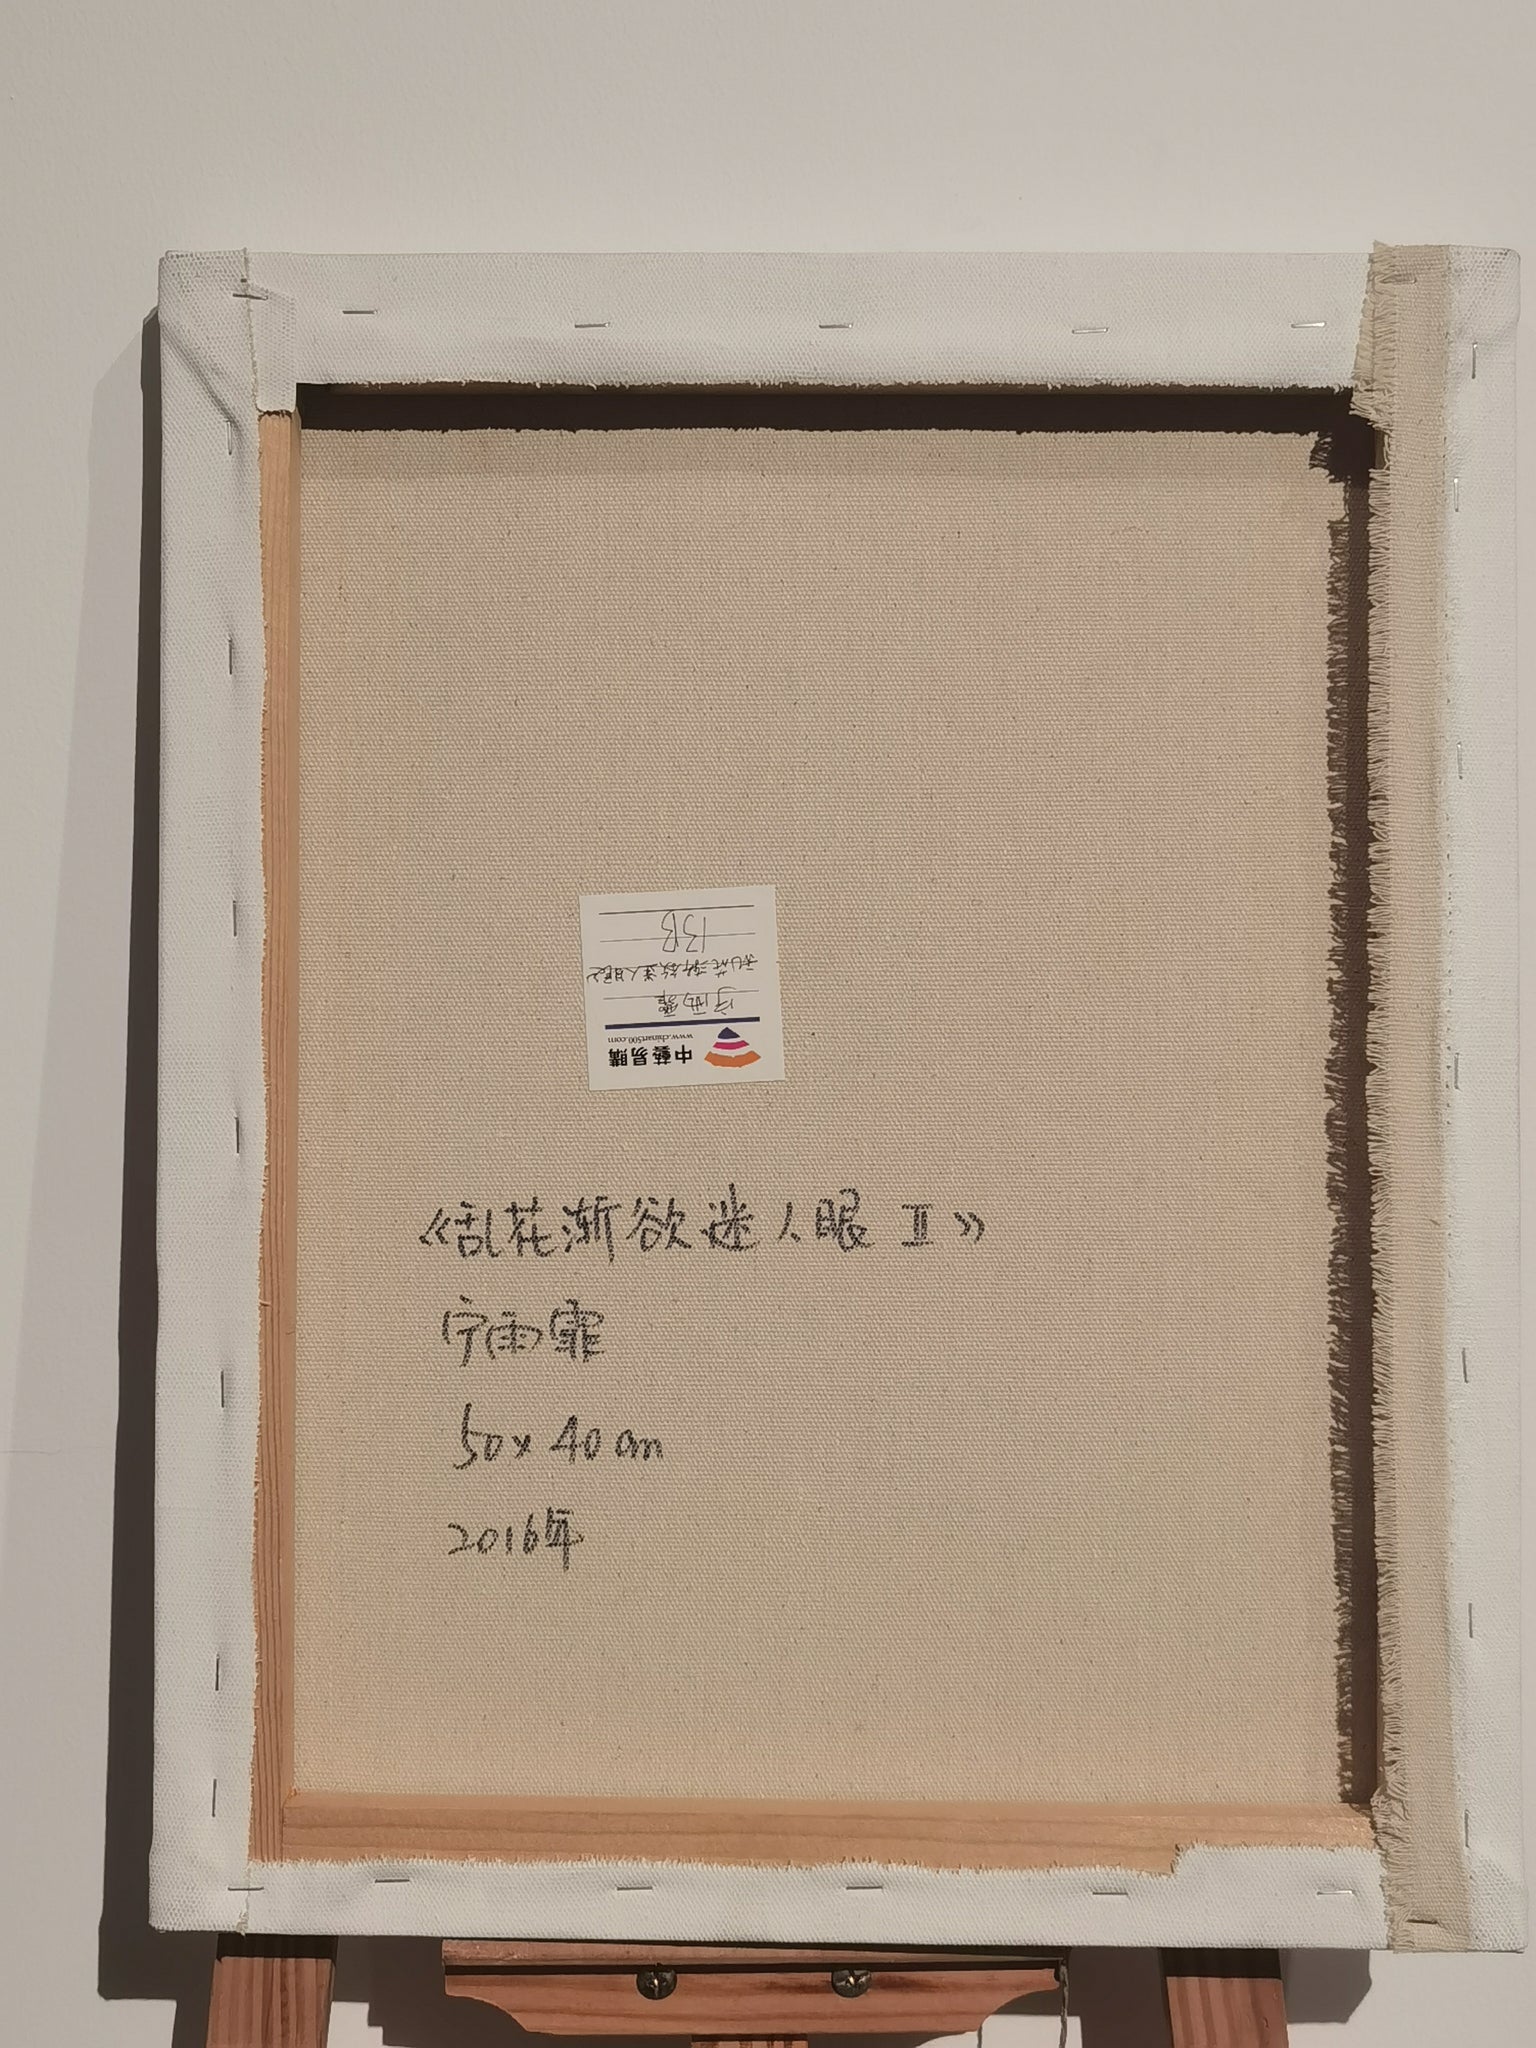 13B
乱花渐欲迷人眼2
宁雨霏
www.chinart500.com
中藝易購
《乱花渐欲迷人眼 Ⅱ》
宁雨霏
50x40cm
2016年